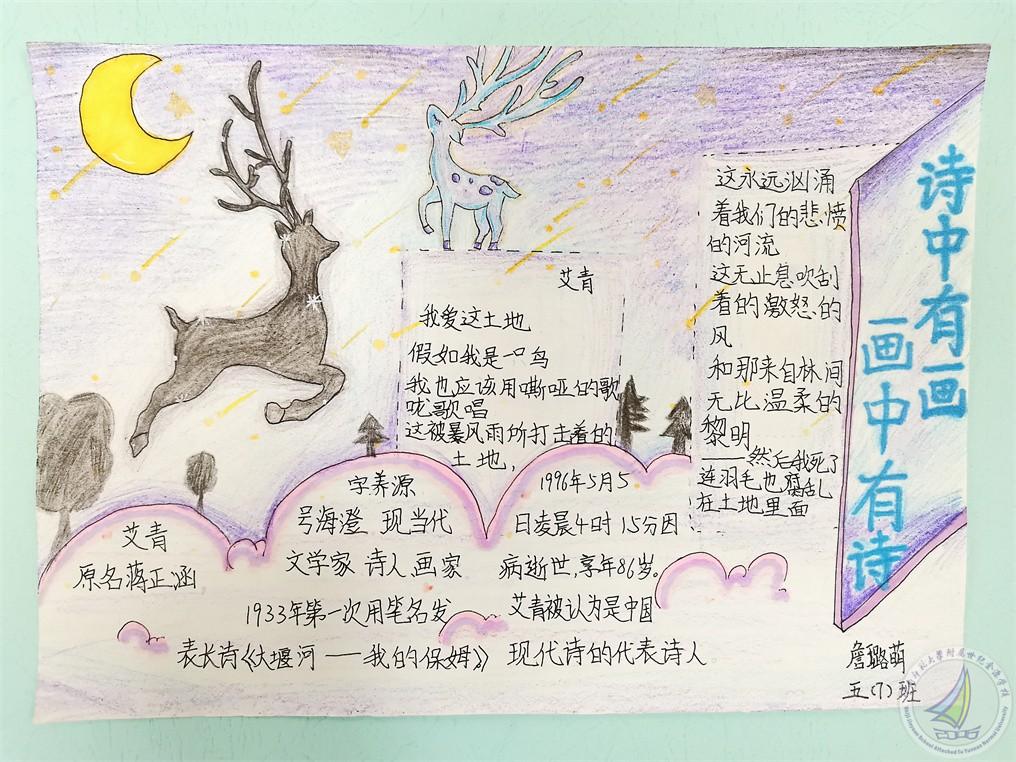 诗中有画
画中有诗
艾青
我爱这土地
假如我是一只鸟
我也应该用嘶哑的歌
咙歌唱
这被暴风雨所打击着的
土地，
这永远汹涌
着我们的悲愤
的河流
这无止息吹刮
着的激怒的
风
和那来自林间
无比温柔的
黎明
——然后我死了
连羽毛也腐乱
在土地里面
艾青
原名蒋正涵
字养源
号海澄 现当代
文学家 诗人、画家
1933年第一次用笔名发
表长诗《大堰河——我的保姆》
1996年5月5
日凌晨4时15分因
病逝世，享年86岁。
艾青被认为是中国
现代诗的代表诗人
詹璐萌
五(7)班